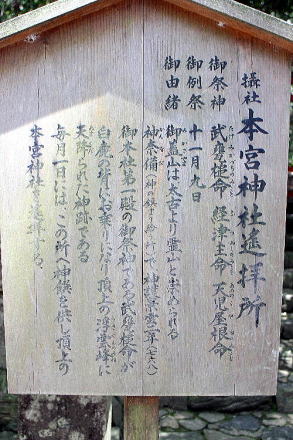 摂社 本宮神社遙拝所
御祭神 武甕槌命 経津主命 天児屋根命
御例祭 十一月九日
御由緒 御蓋山は太古より霊山と崇められる
神奈備(神の鎮まり給う所)で 神護景雲二年(七六八)
御本社第一殿の御祭神である武甕槌命が
白鹿の背にお乗りになり頂上の浮雲峰に
天降られた神跡である
毎月一日には、この所へ神饌を供し頂上の
本宮神社を遙拝する。